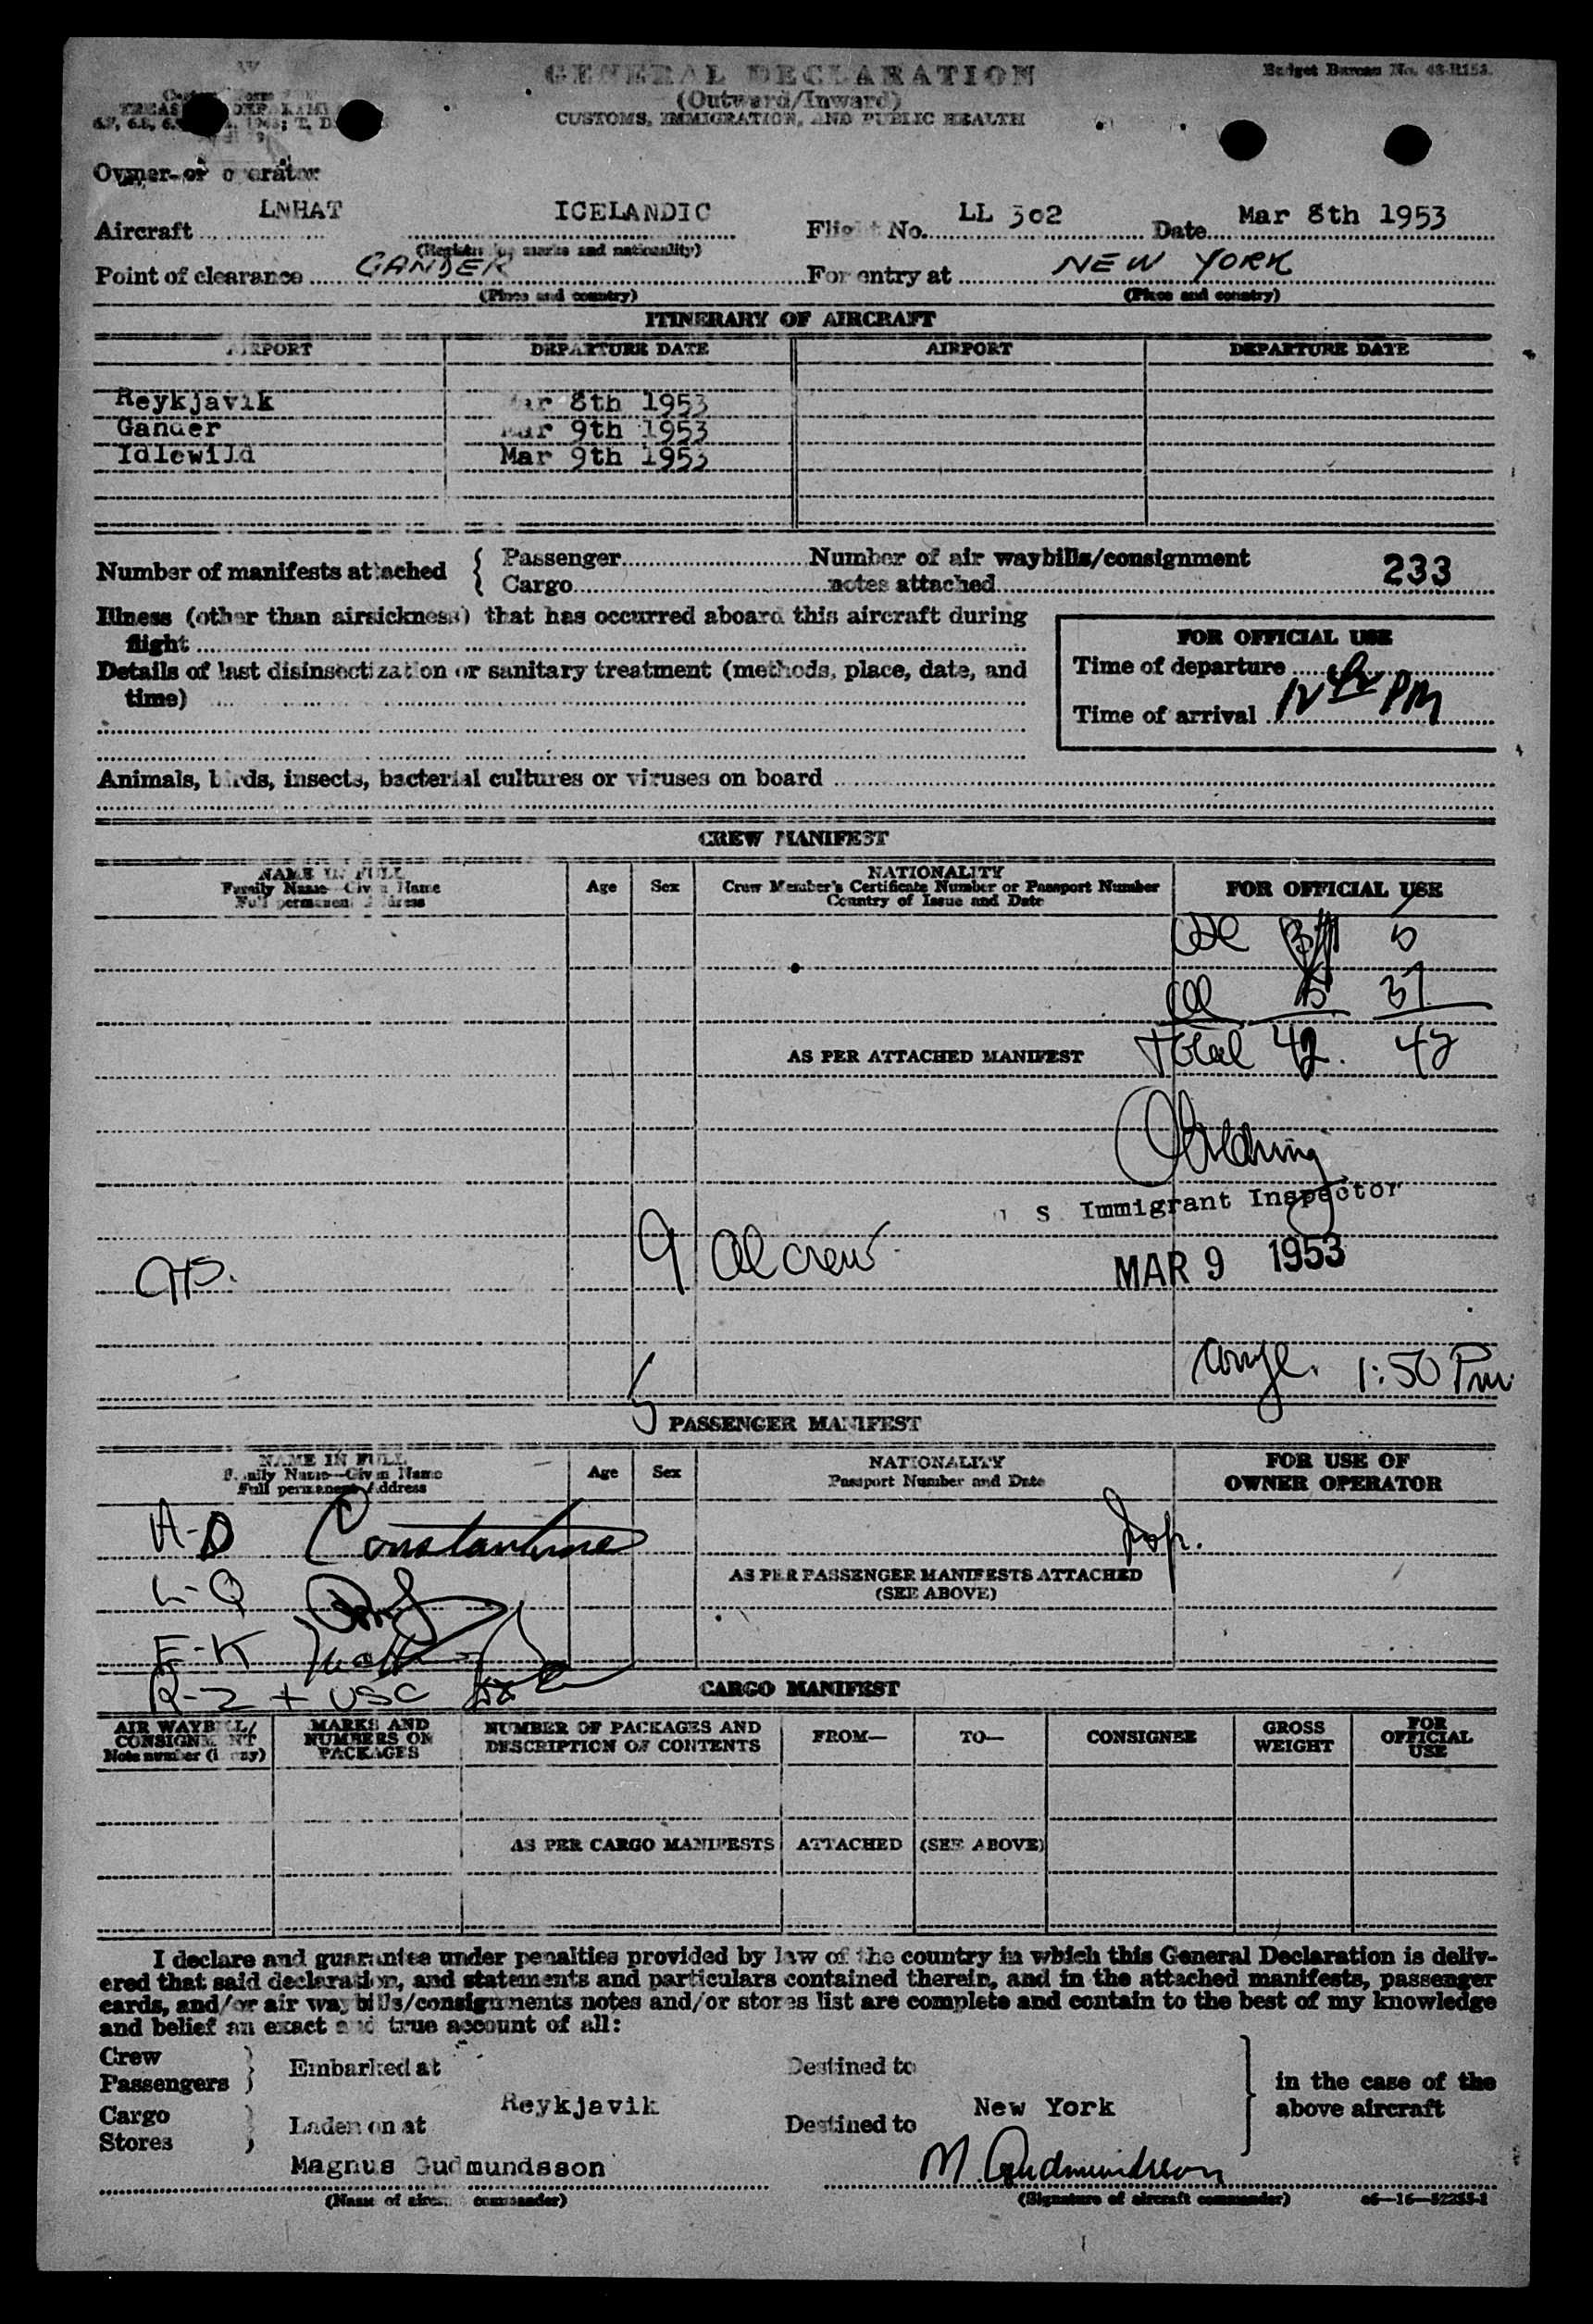 GENERAL DECLARATION
(Outward/Inward)
CUSTOMS, IMMIGRATION, AND PUBLIC HEALTH
Budget Bureau No. 48-R153.
Owner or operator
Aircraft LNHAT ICELANDIC Flight No. LL 302 Date Mar 8th 1953
(Registration marks and nationality)
Point of clearance GANDER For entry at NEW YORK
(Place and country) (Place and country)
ITINERARY OF AIRCRAFT
AIRPORT DEPARTURE DATE AIRPORT DEPARTURE DATE
Reykjavik Mar 8th 1953
Gander Mar 9th 1953
Idlewild Mar 9th 1953
Number of manifests attached { Passenger Number of air waybills/consignment
{ Cargo notes attached 233
Illness (other than airsickness) that has occurred aboard this aircraft during
flight
FOR OFFICIAL USE
Details of last disinsectization or sanitary treatment (methods, place, date, and
time)
Time of departure
Time of arrival 12 PM
Animals, birds, insects, bacterial cultures or viruses on board
CREW MANIFEST
NAME IN FULL
Family Name—Given Name
Full permanent address
Age Sex
NATIONALITY
Crew Member's Certificate Number or Passport Number
Country of Issue and Date
FOR OFFICIAL USE
5
37
AS PER ATTACHED MANIFEST Total 42. 42
U S Immigrant Inspector
9 Al crew
MAR 9 1953
1:50 Pm
PASSENGER MANIFEST
NAME IN FULL
Family Name—Given Name
Full permanent Address
Age Sex
NATIONALITY
Passport Number and Date
FOR USE OF
OWNER OPERATOR
A-D Constantine Insp.
L-Q
AS PER PASSENGER MANIFESTS ATTACHED
(SEE ABOVE)
E-K
R-Z + USC
CARGO MANIFEST
AIR WAYBILL/
CONSIGNMENT
Note number (if any)
MARKS AND
NUMBERS ON
PACKAGES
NUMBER OF PACKAGES AND
DESCRIPTION OF CONTENTS
FROM— TO— CONSIGNEE
GROSS
WEIGHT
FOR
OFFICIAL
USE
AS PER CARGO MANIFESTS ATTACHED (SEE ABOVE)
I declare and guarantee under penalties provided by law of the country in which this General Declaration is deliv-
ered that said declaration, and statements and particulars contained therein, and in the attached manifests, passenger
cards, and/or air waybills/consignments notes and/or stores list are complete and contain to the best of my knowledge
and belief an exact and true account of all:
Crew
Passengers } Embarked at Destined to
Reykjavik New York
Cargo
Stores } Laden on at Destined to
} in the case of the
above aircraft
Magnus Gudmundsson M. Gudmundsson
(Name of aircraft commander) (Signature of aircraft commander) 16—52255-1